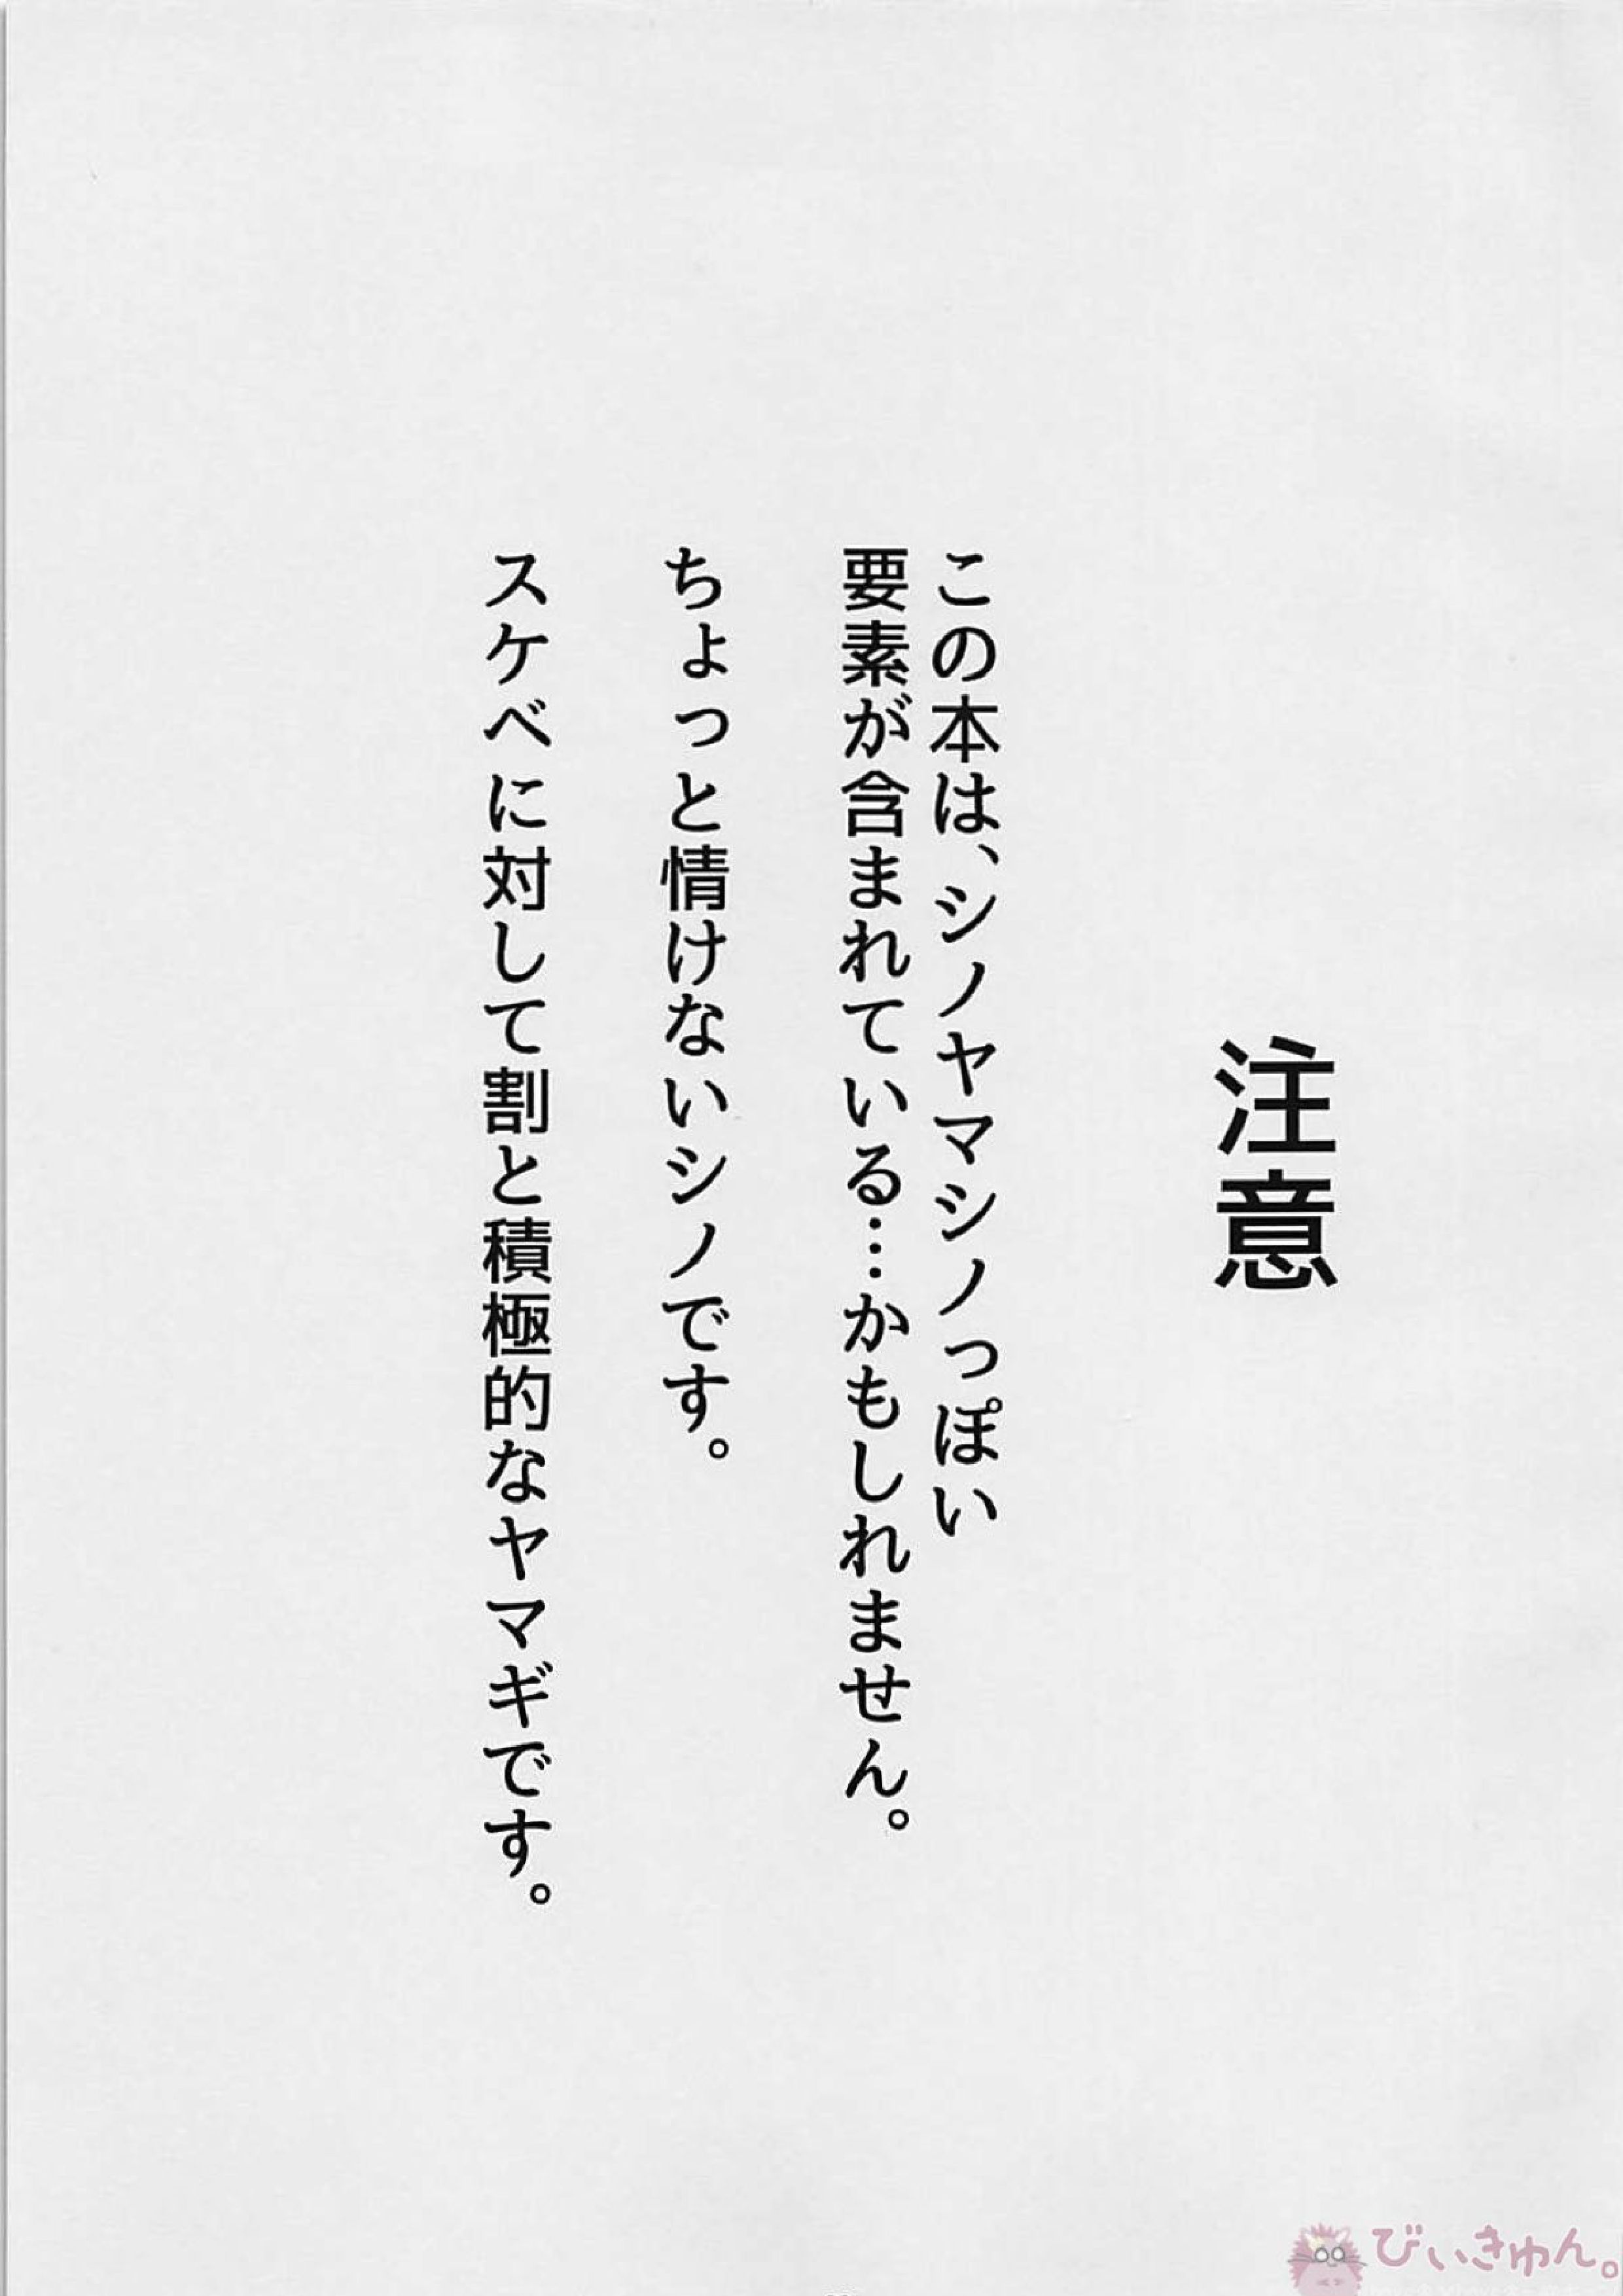 注意
この本は、シノヤマシノっぽい
要素が含まれている…かもしれません。
ちょっと情けないシノです。
スケベに対して割と積極的なヤマギです。
びぃきゅん。